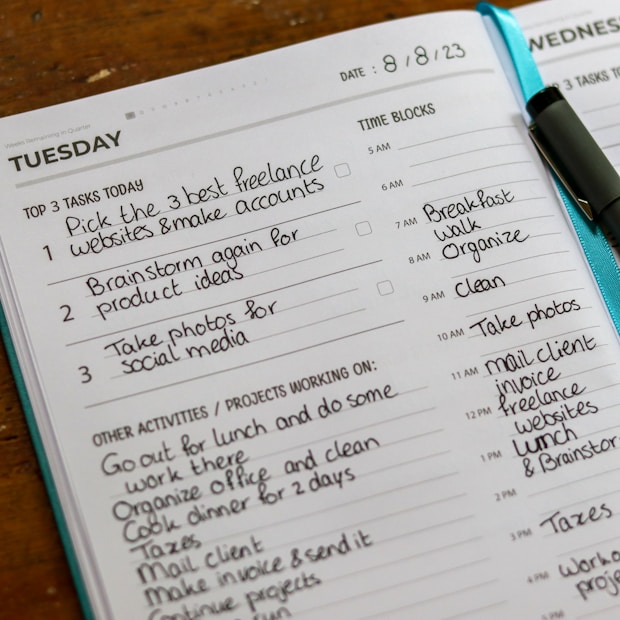 Weeks Remaining in Quarter
TUESDAY
DATE : 8/8/23
TOP 3 TASKS TODAY
1 Pick the 3 best freelance
websites & make accounts
2 Brainstorm again for
product ideas
3 Take photos for
social media
OTHER ACTIVITIES / PROJECTS WORKING ON:
Go out for lunch and do some
work there
Organize office and clean
Cook dinner for 2 days
Taxes
Mail client
Make invoice & send it
Continue projects
run
TIME BLOCKS
5 AM
6 AM
7 AM Breakfast
walk
8 AM Organize
9 AM Clean
10 AM Take photos
11 AM mail client
invoice
12 PM freelance
websites
1 PM Lunch
& Brainstor
2 PM
3 PM Taxes
4 PM Worko
proje
WEDNES
3 TASKS TO